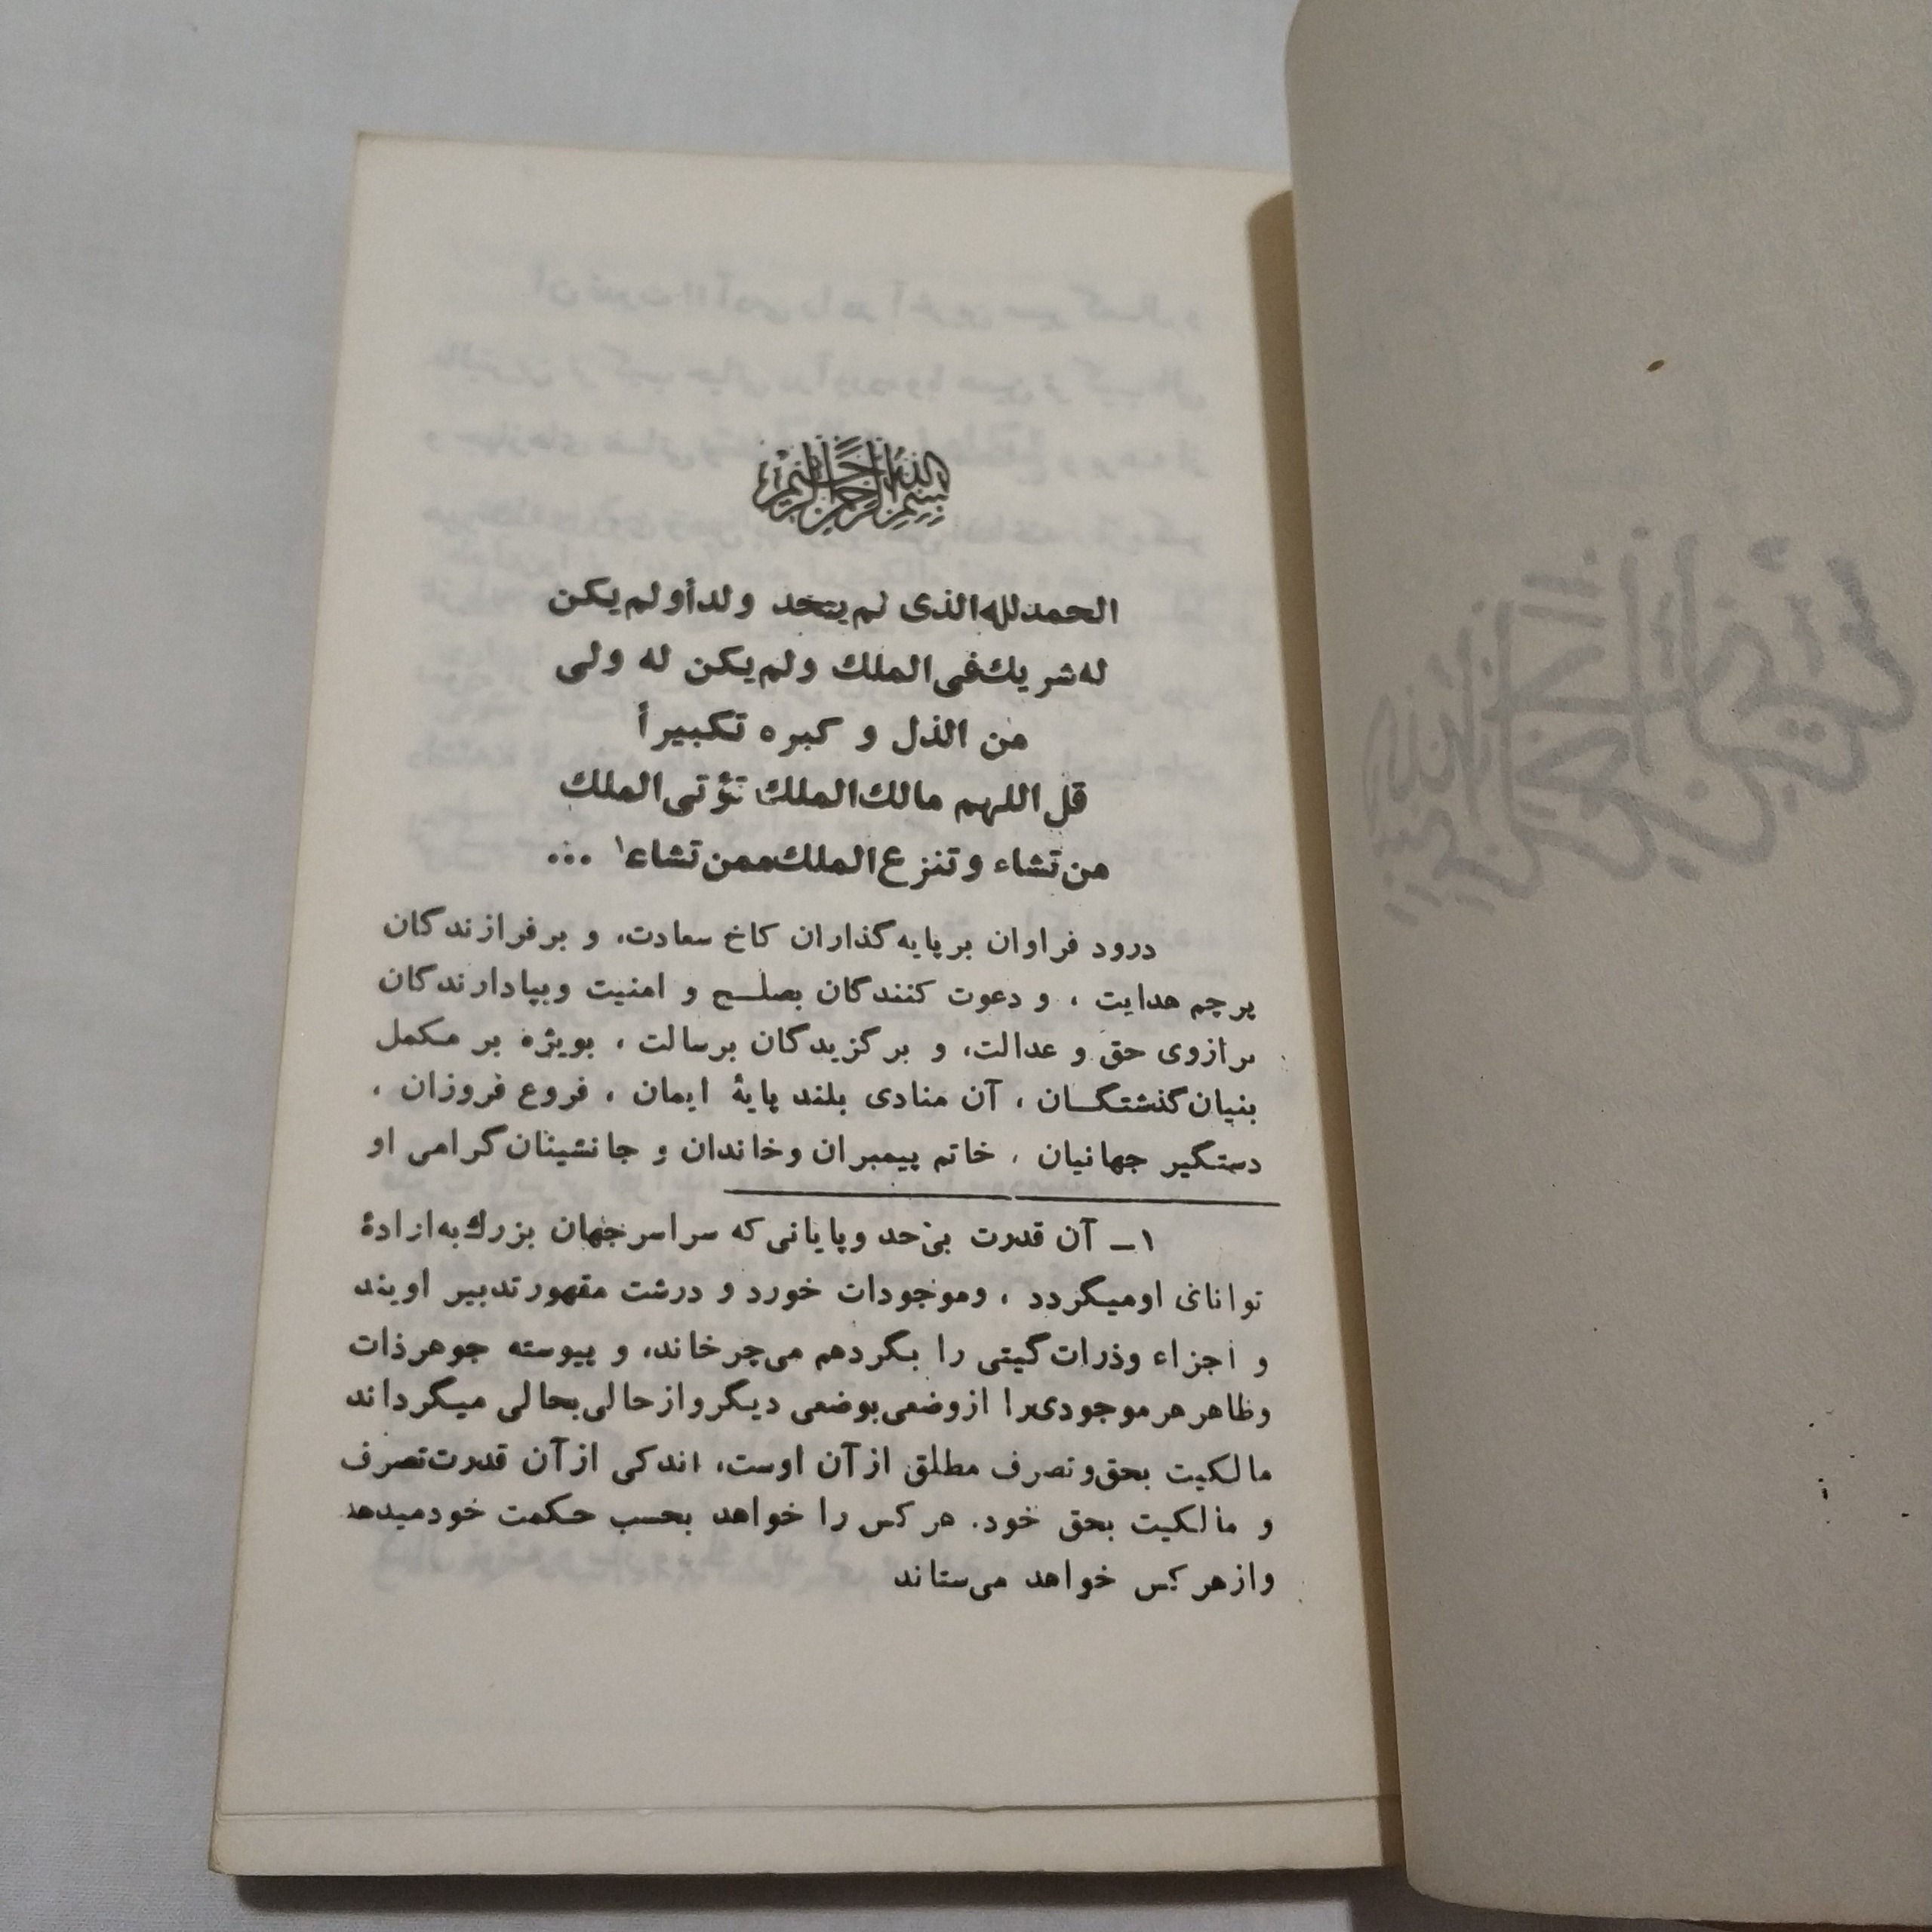 بسم الله الرحمن الرحيم
الحمدلله الذى لم يتخد ولدأو لم يكن
له شريك فى الملك ولم يكن له ولى
من الذل و كبره تكبيرأ
قل اللهم مالك الملك تؤتى الملك
من تشاء و تنزع الملك ممن تشاء۱ ...
درود فراوان بر پایه گذاران کاخ سعادت، و برفرازندگان
پرچم هدایت ، و دعوت کنندگان بصلح و امنیت وبپادارندگان
ترازوی حق و عدالت، و برگزیدگان برسالت ، بویژه بر مکمل
بنیان گذشتگان ، آن منادی بلند پایهٔ ایمان ، فروع فروزان ،
دستگیر جهانیان ، خاتم پیمبران وخاندان و جانشینان گرامی او
۱ـ آن قدرت بی‌حد وپایانی که سراسر جهان بزرك به ارادهٔ
توانای اومیگردد ، وموجودات خورد و درشت مقهور تدبیر اویند
و اجزاء وذرات گیتی را بگردهم می‌چرخاند، و پیوسته جوهر ذات
وظاهر هر موجودی را ازوضعی بوضعی دیگر و از حالی بحالی میگرداند
مالکیت بحق و تصرف مطلق از آن اوست، اندکی از آن قدرت تصرف
و مالکیت بحق خود. هر کس را خواهد بحسب حکمت خود میدهد
و از هر کس خواهد می‌ستاند
بسم الله الرحمن الرحيم